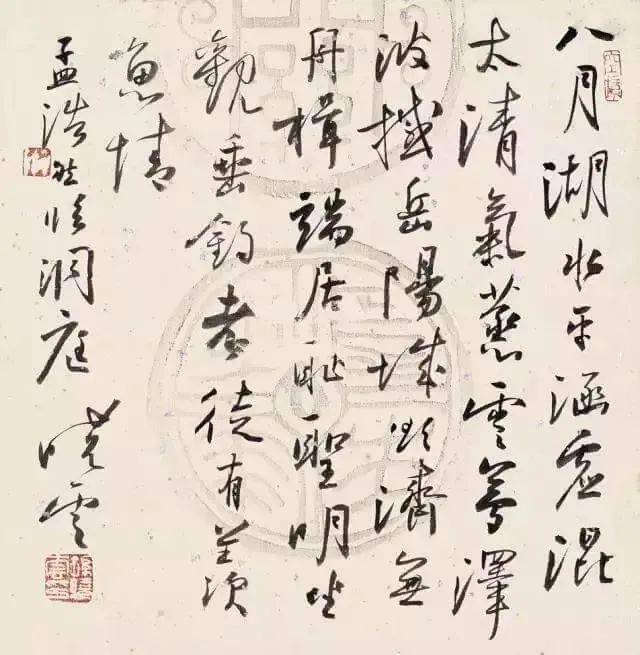 八月湖水平涵虚混
太清氣蒸雲夢澤
波撼岳陽城欲濟無
舟楫端居耻聖明坐
觀垂釣者徒有羨
魚情
孟浩然臨洞庭
曉雲